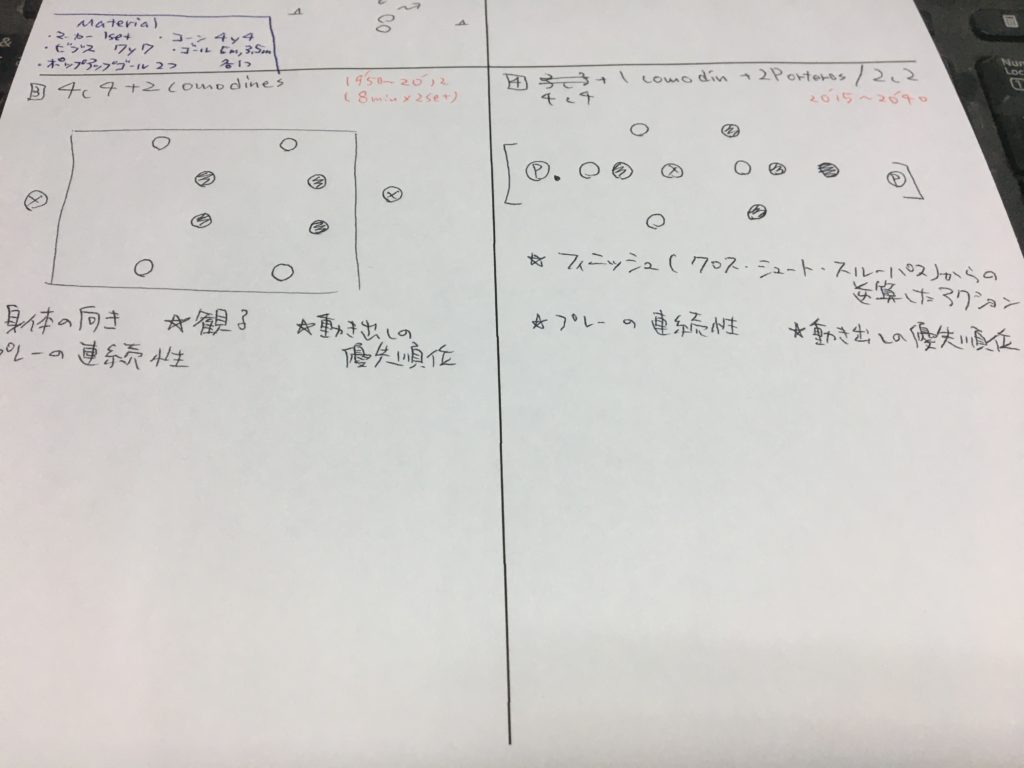 Material
・マーカー 1set ・コーン 4y4
・ビブス 7y7 ・ゴール 5m, 3.5m
・ポップアップゴール2つ 各1つ
3 4c4+2 comodines
19'50~20'12
(8min×2set)
身体の向き ☆観る ☆動き出しの
プレーの連続性 優先順位
4 3c3+1 comodin +2Porteros/2c2
4c4
20'15~20'40
P P
☆フィニッシュ(クロス・シュート・スルーパス)からの
逆算したアクション
☆プレーの連続性 ☆動き出しの優先順位